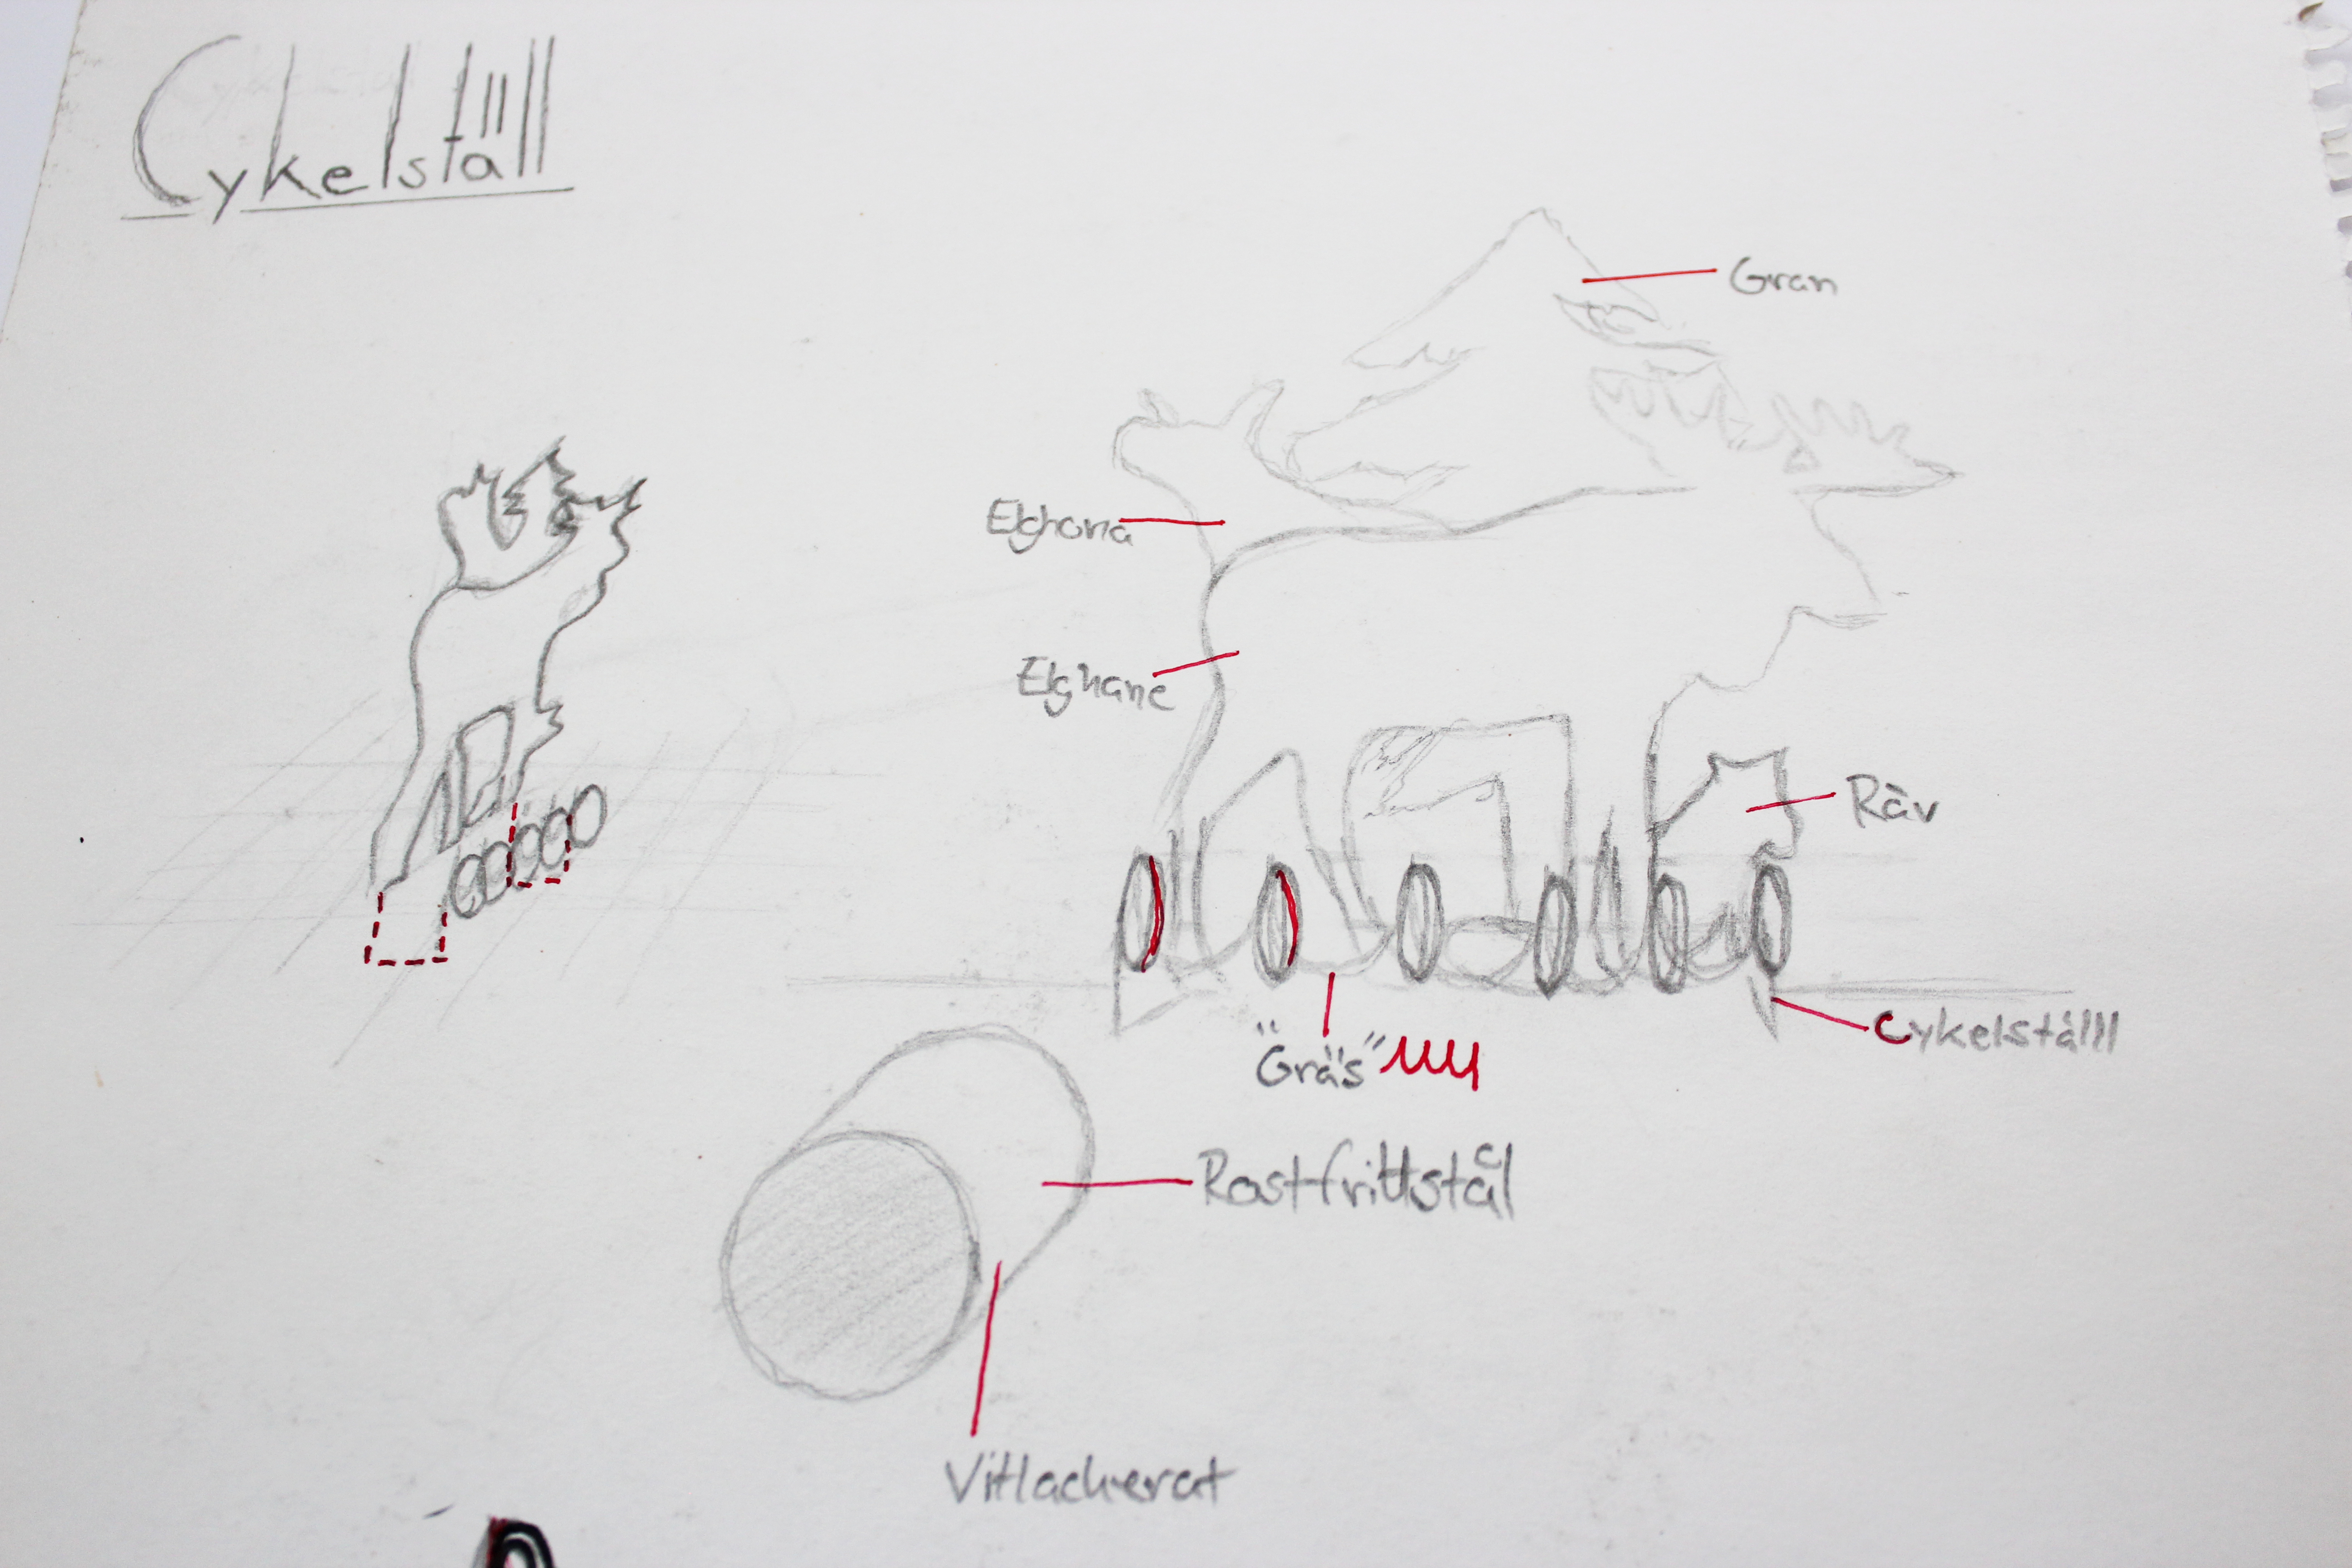 Cykelställ
Gran
Elghona
Elghane
Räv
"Gräs"
Cykelställl
Rostfrittstål
Vitlackerat